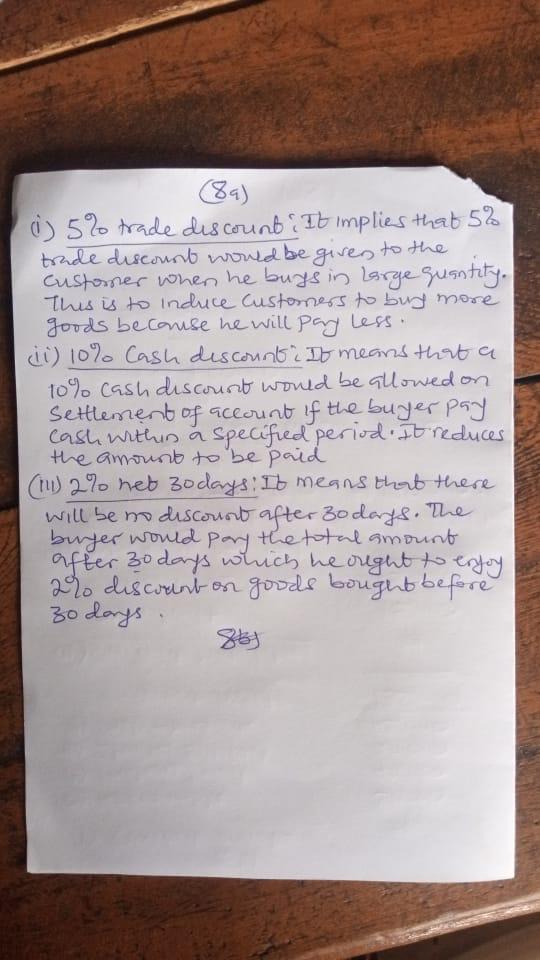 (8a)
(i) 5% trade discount: It implies that 5%
trade discount would be given to the
customer when he buys in large quantity.
This is to induce customers to buy more
goods because he will pay less.
(ii) 10% Cash discount: It means that a
10% cash discount would be allowed on
settlement of account if the buyer pay
cash within a specified period. It reduces
the amount to be paid
(iii) 2% net 30days: It means that there
will be no discount after 30 days. The
buyer would pay the total amount
after 30 days which he ought to enjoy
2% discount on goods bought before
30 days.